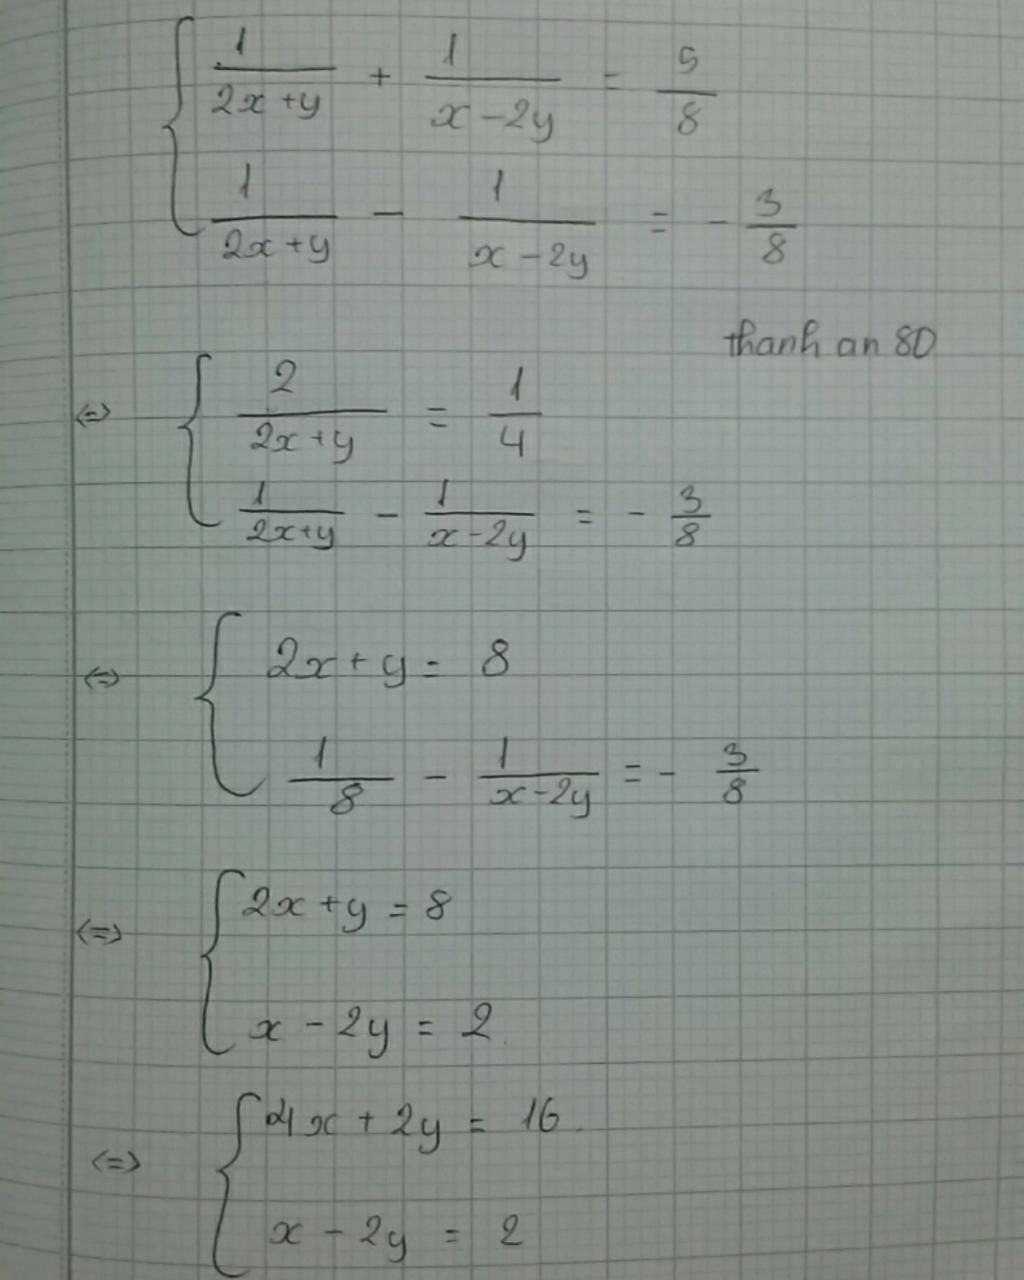 { 1/(2x+y) + 1/(x-2y) = 5/8
1/(2x+y) - 1/(x-2y) = -3/8
thanh an 80
<=> { 2/(2x+y) = 1/4
1/(2x+y) - 1/(x-2y) = -3/8
<=> { 2x+y = 8
1/8 - 1/(x-2y) = -3/8
<=> { 2x+y = 8
x-2y = 2
<=> { 4x+2y = 16
x-2y = 2